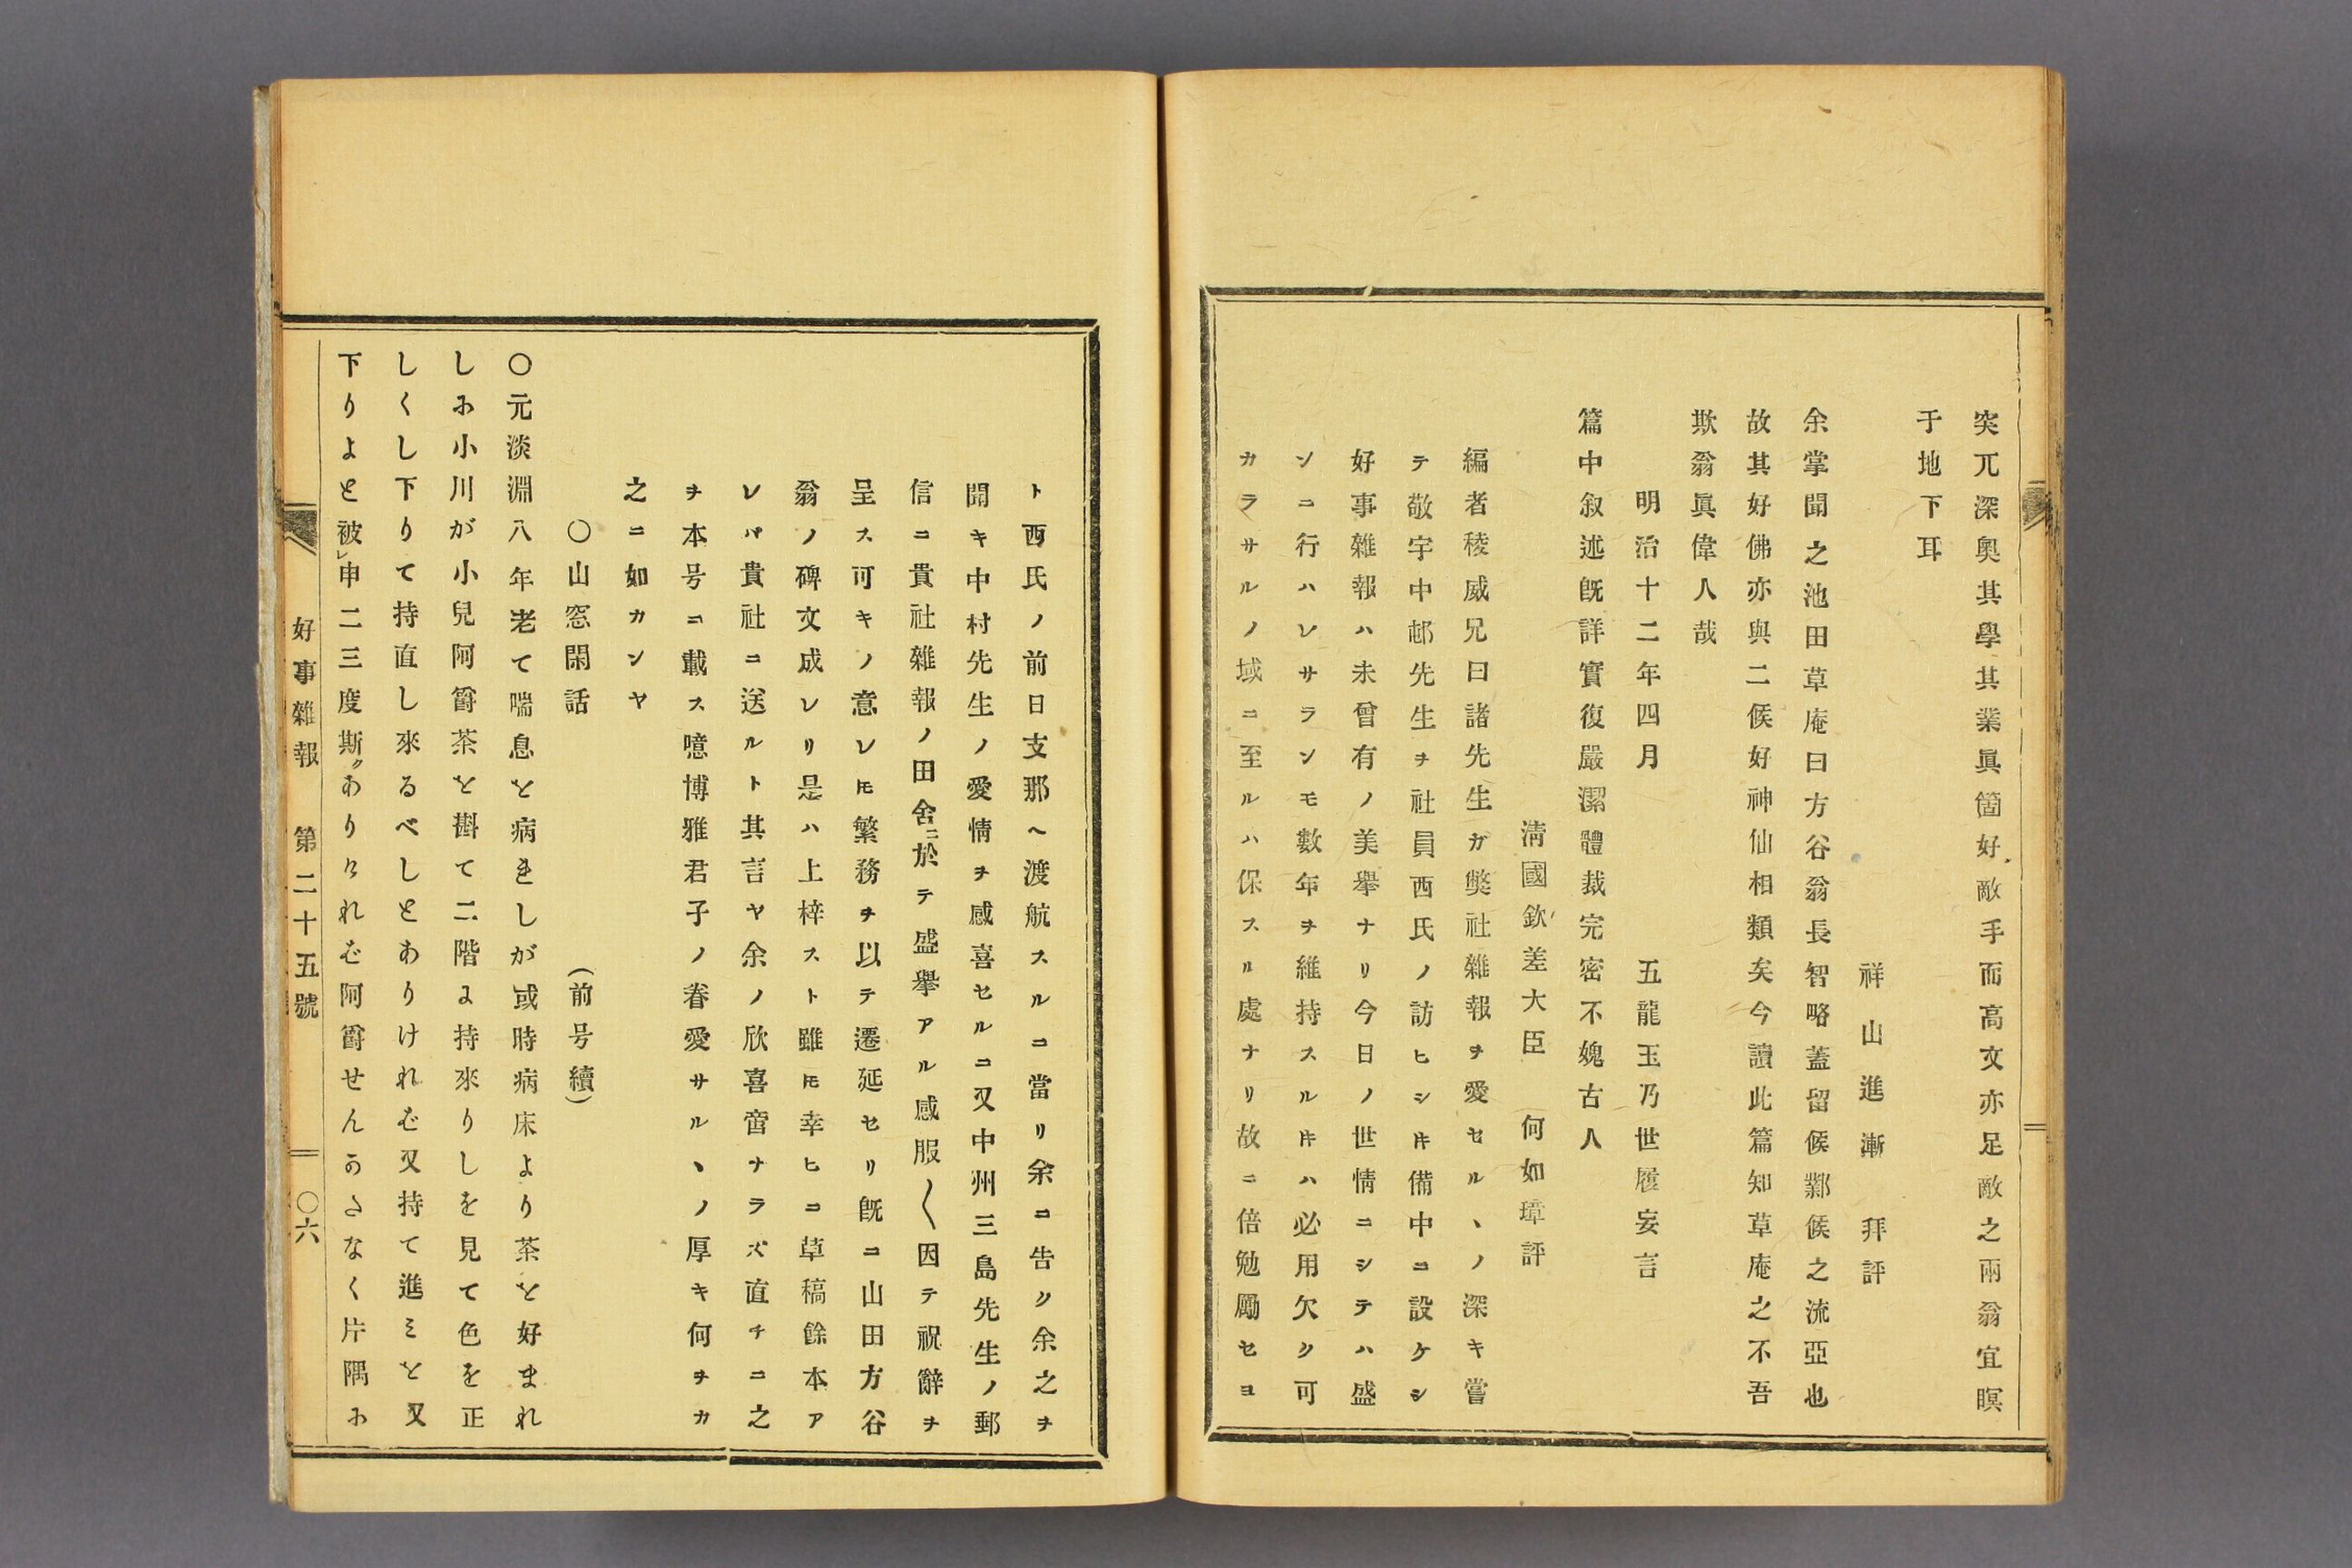 突兀深奧其學其業眞箇好敵手而高文亦足敵之兩翁宜瞑
于地下耳
祥山進漸　拜評
余掌聞之池田草庵曰方谷翁長智略蓋留侯酇侯之流亞也
故其好佛亦與二侯好神仙相類矣今讀此篇知草庵之不吾
欺翁眞偉人哉
明治十二年四月　　五龍玉乃世履妄言
篇中叙述既詳實復嚴潔體裁完密不媿古人
淸國欽差大臣　何如璋評
編者稜威兄曰諸先生ガ獘社雜報ヲ愛セルヽノ深キ嘗
テ敬宇中邨先生ヲ社員西氏ノ訪ヒシㇳキ備中ニ設ケシ
好事雜報ハ未曾有ノ美擧ナリ今日ノ世情ニシテハ盛
ンニ行ハレサランモ數年ヲ維持スルㇳキハ必用欠ク可
カラサルノ域ニ至ルハ保スル處ナリ故ニ倍勉勵セヨ
ト西氏ノ前日支那ヘ渡航スルニ當リ余ニ告ク余之ヲ
聞キ中村先生ノ愛情ヲ感喜セルニ又中州三島先生ノ郵
信ニ貴社雜報ノ田舍ニ於テ盛擧アル感服〱因テ祝辭ヲ
呈ス可キノ意レㇳモ繁務ヲ以テ遷延セリ既ニ山田方谷
翁ノ碑文成レリ是ハ上梓スト雖ㇳモ幸ヒニ草稿餘本ア
レバ貴社ニ送ルト其言ヤ余ノ欣喜啻ナラズ直チニ之
ヲ本号ニ載ス噫博雅君子ノ眷愛サルヽノ厚キ何ヲカ
之ニ如カンヤ
〇山窓閑話　　（前号續）
〇元淡淵八年老て喘息と病きしが或時病床より茶と好まれ
しお小川が小兒阿爵茶と斟て二階よ持來りしを見て色を正
しくし下りて持直し來るべしとありけれむ又持て進ミと又
下りよと被レ申二三度斯クありけれむ阿爵せんかさなく片隅お
好事雜報　第二十五號　〇六